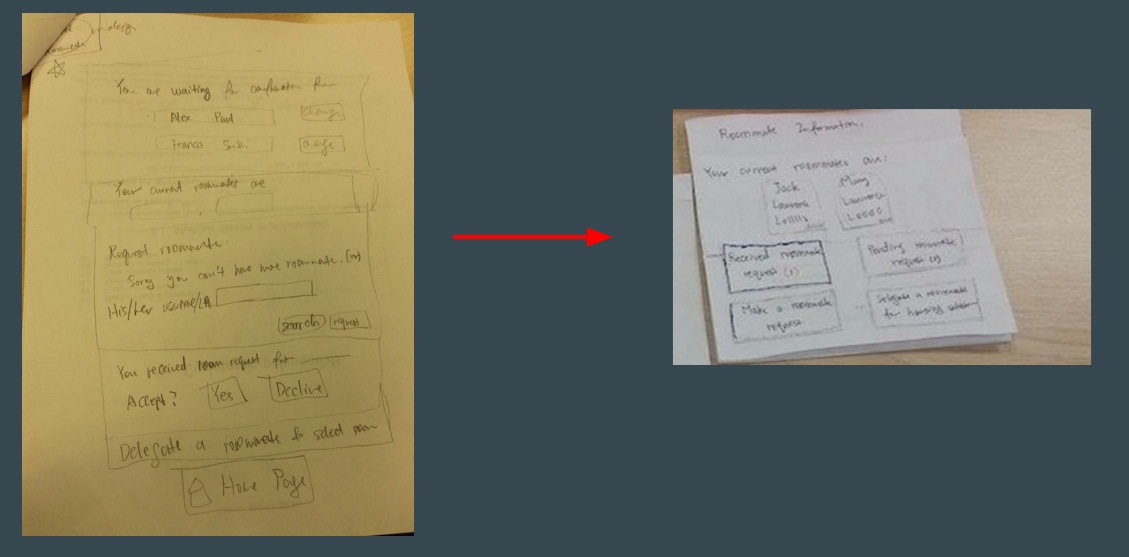 design
You are waiting for confirmation from
Alex Paul change
Francis Smith change
Your current roommates are
Request roommate.
Sorry you can't have more roommate.
His/her username/
search request
You received room request for
Accept? Yes Decline
Delegate a roommate to select room
Home Page
Roommate Information.
Your current roommates are:
Jack Mary
Lawrora Lawrora
Received roommate
request (1)
Pending roommate
request
Make a roommate
request
Delegate a roommate
for housing